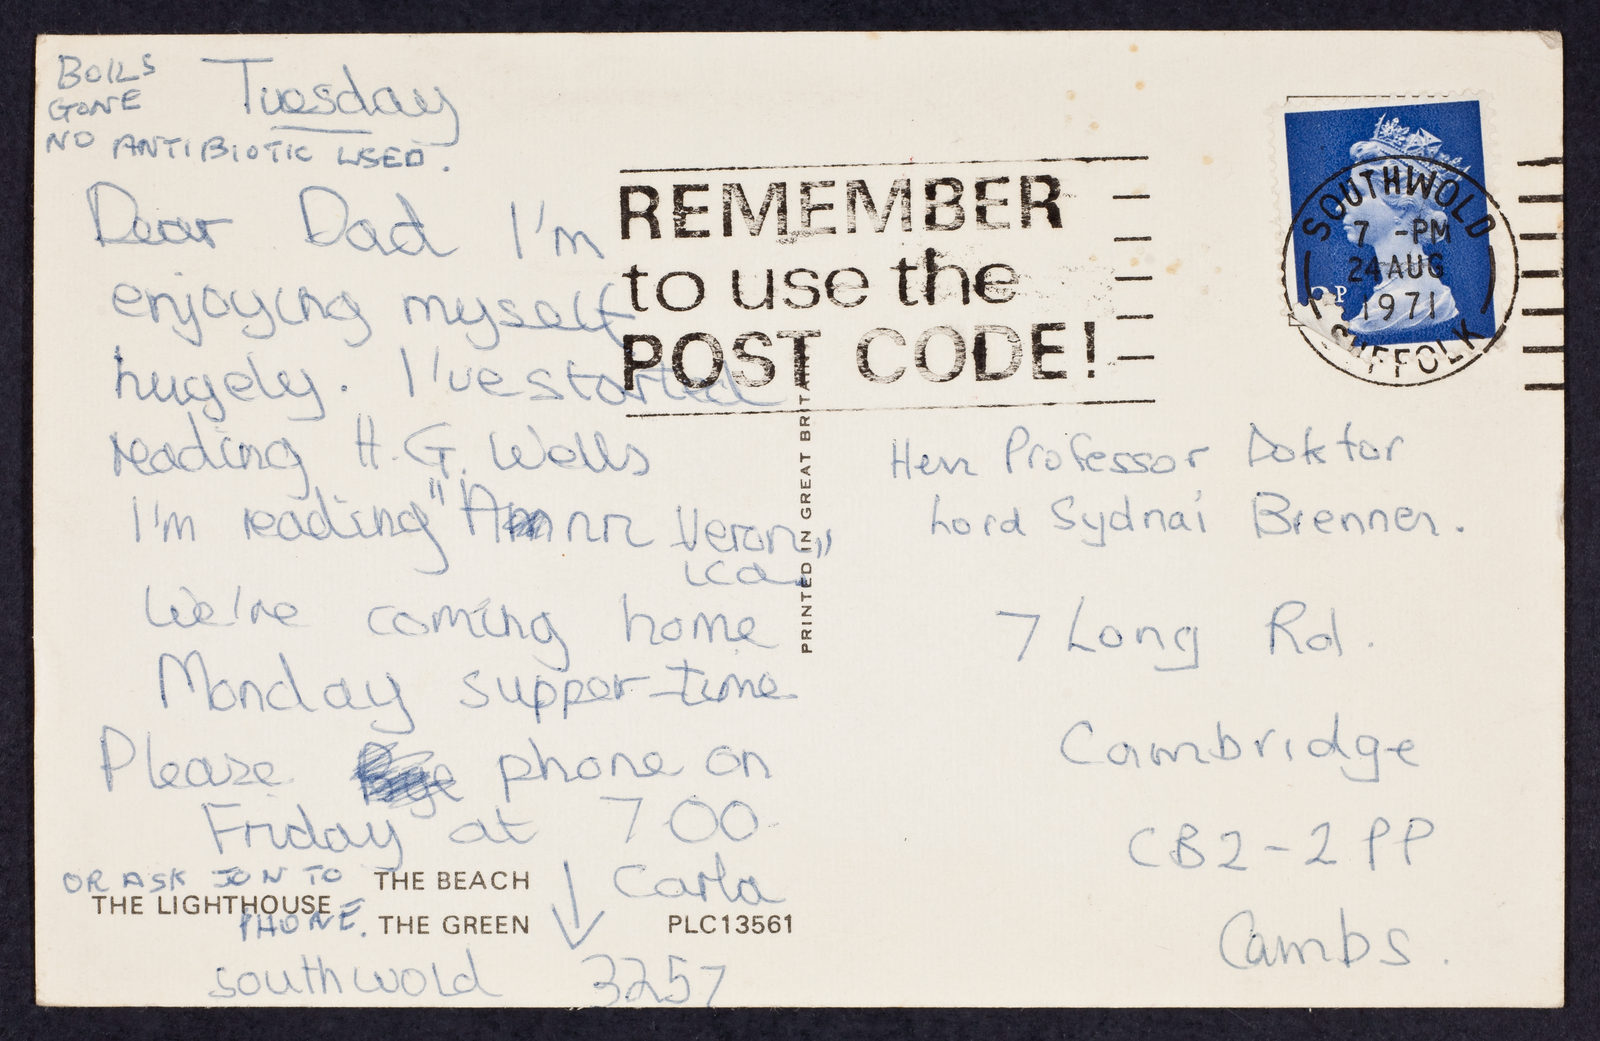 BOILS
GONE
NO ANTIBIOTIC USED.
Tuesday
Dear Dad I'm
enjoying myself
hugely. I've started
reading H.G. Wells
I'm reading "Ann Veron
ica"
We're coming home
Monday supper-time
Please phone on
Friday at 7 00
Carla
OR ASK JON TO
PHONE.
southwold 3257
THE BEACH
THE LIGHTHOUSE
THE GREEN
PLC13561
PRINTED IN GREAT BRITAIN
REMEMBER
to use the
POST CODE!
SOUTHWOLD
7 -PM
24 AUG
1971
SUFFOLK
Herr Professor Doktor
Lord Sydnai Brenner.
7 Long Rd.
Cambridge
CB2-2PP
Cambs.